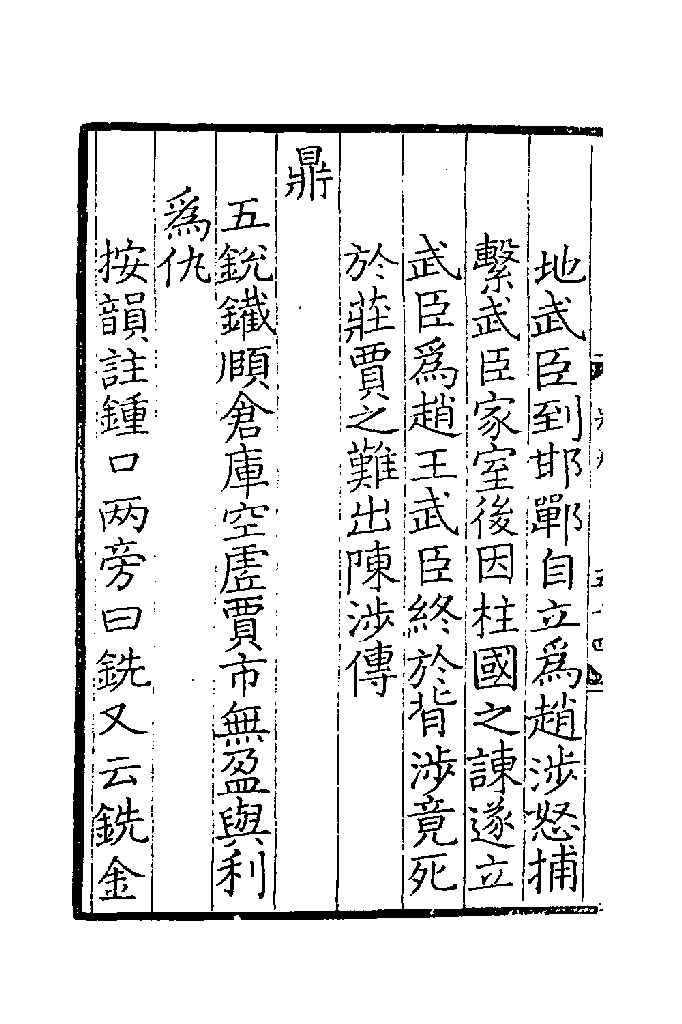 地武臣到邯鄲自立爲趙涉怒捕
繫武臣家室後因柱國之諫遂立
武臣爲趙王武臣終於背涉竟死
於莊賈之難出陳涉傳
鼎
五銳鐵頤倉庫空虛賈市無盈與利
爲仇
按韻註鍾口两旁曰銑又云銑金